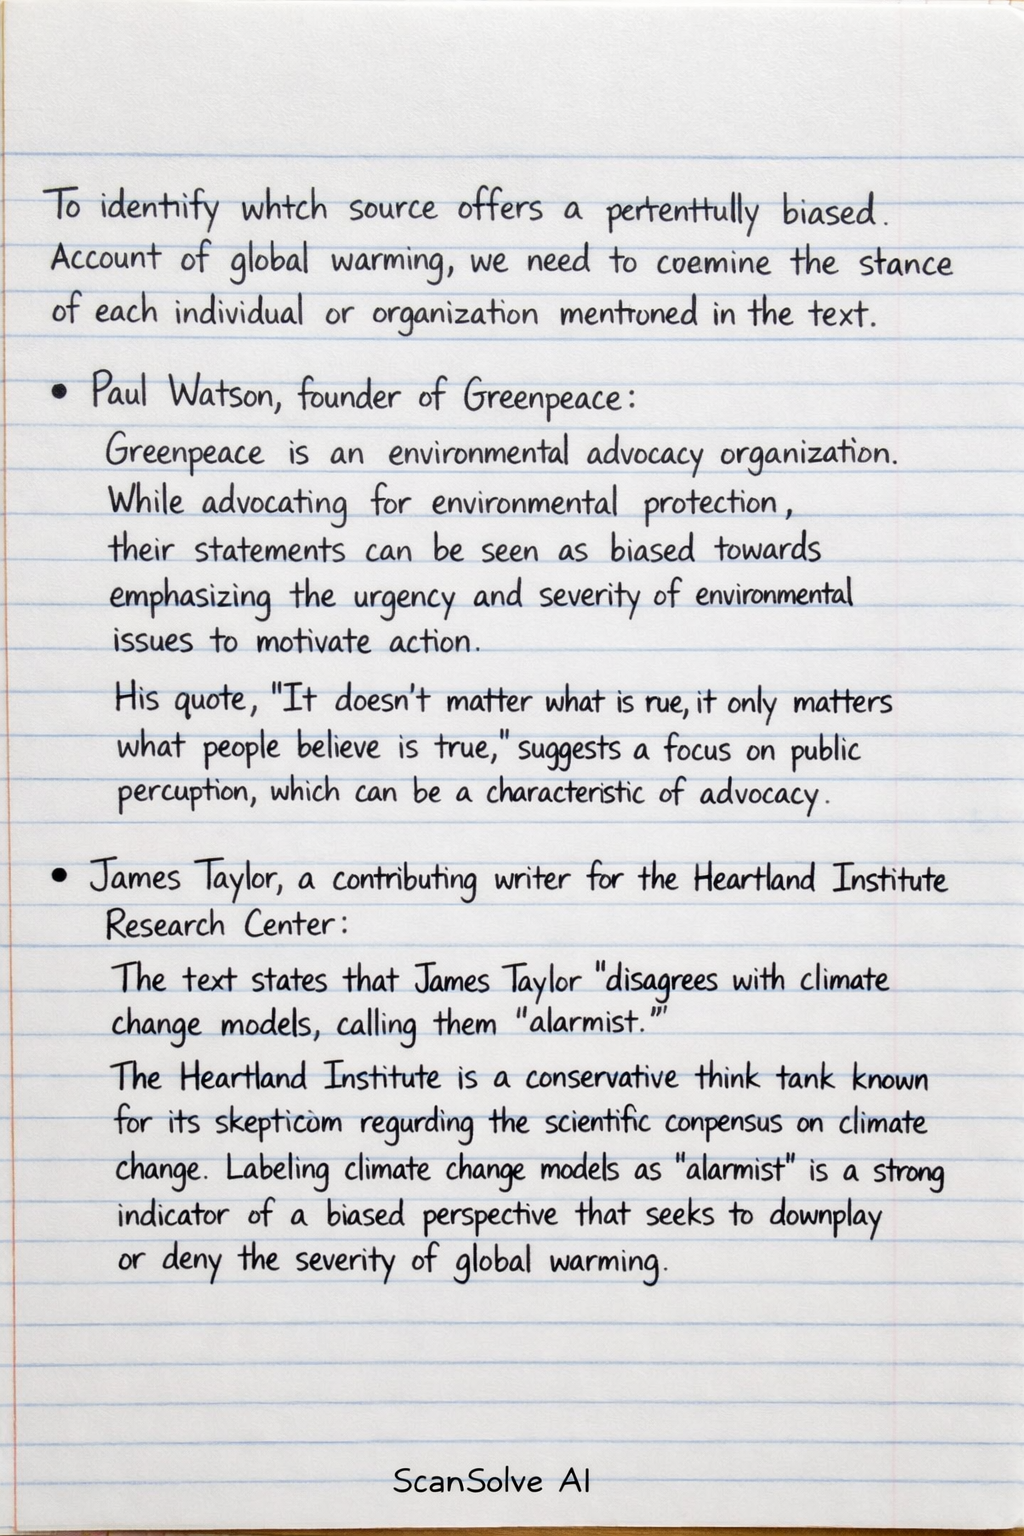 To identnify whtch source offers a pertenttully biased.
Account of global warming, we need to coemine the stance
of each individual or organization mentroned in the text.
• Paul Watson, founder of Greenpeace:
Greenpeace is an environmental advocacy organization.
While advocating for environmental protection,
their statements can be seen as biased towards
emphasizing the urgency and severity of environmental
issues to motivate action.
His quote, "It doesn't matter what is rue, it only matters
what people believe is true," suggests a focus on public
percuption, which can be a characteristic of advocacy.
• James Taylor, a contributing writer for the Heartland Institute
Research Center:
The text states that James Taylor "disagrees with climate
change models, calling them "alarmist.""
The Heartland Institute is a conservative think tank known
for its skepticom regurding the scientific conpensus on climate
change. Labeling climate change models as "alarmist" is a strong
indicator of a biased perspective that seeks to downplay
or deny the severity of global warming.
ScanSolve AI